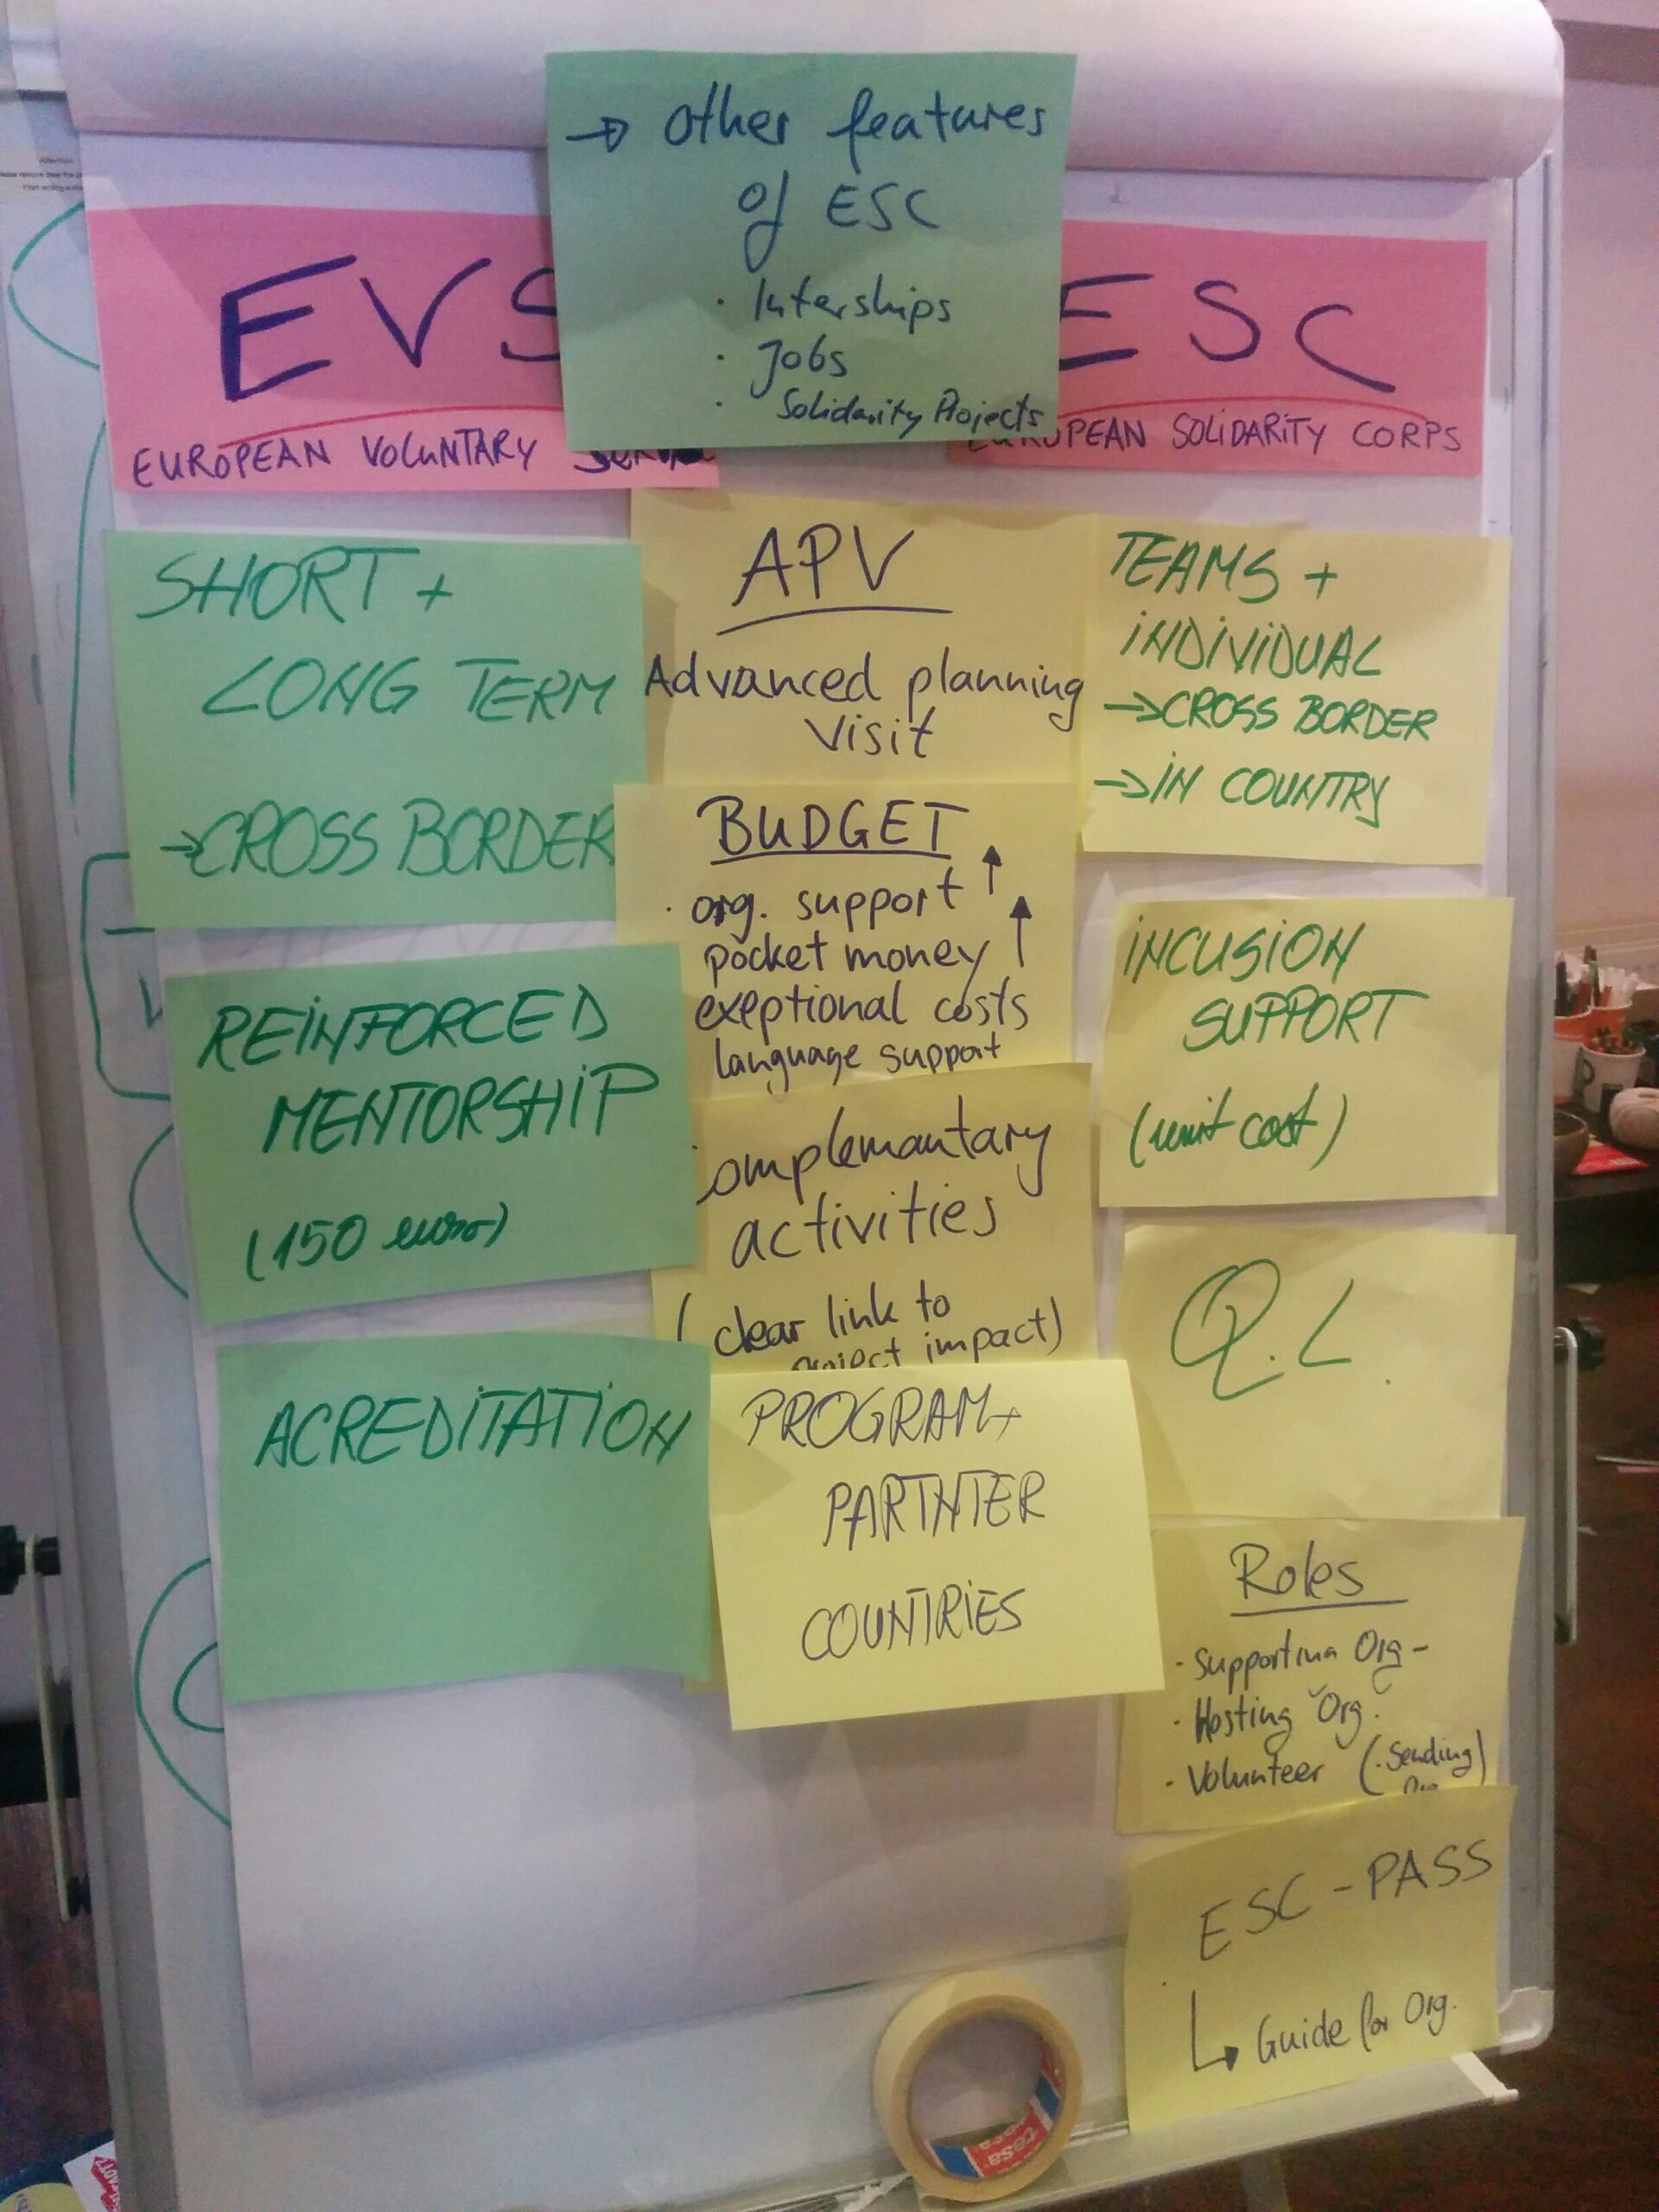 → Other features
of ESC
· Interships
· Jobs
· Solidarity Projects
EVS
EUROPEAN VOLUNTARY
ESC
EUROPEAN SOLIDARITY CORPS
SHORT +
LONG TERM
→ CROSS BORDER
REINFORCED
MENTORSHIP
(150 euro)
ACREDITATION
APV
Advanced planning
visit
BUDGET
· org. support ↑
pocket money ↑
exeptional costs
language support
omplemantary
activities
( clear link to
project impact)
PROGRAM+
PARTNTER
COUNTRIES
TEAMS +
INDIVIDUAL
→ CROSS BORDER
→ IN COUNTRY
INCUSION
SUPPORT
(unit cost)
Q.L.
Roles
· Supporting Org -
· Hosting Org.
· Volunteer (· Sending)
ESC - PASS
↳ Guide for Org.
tesa